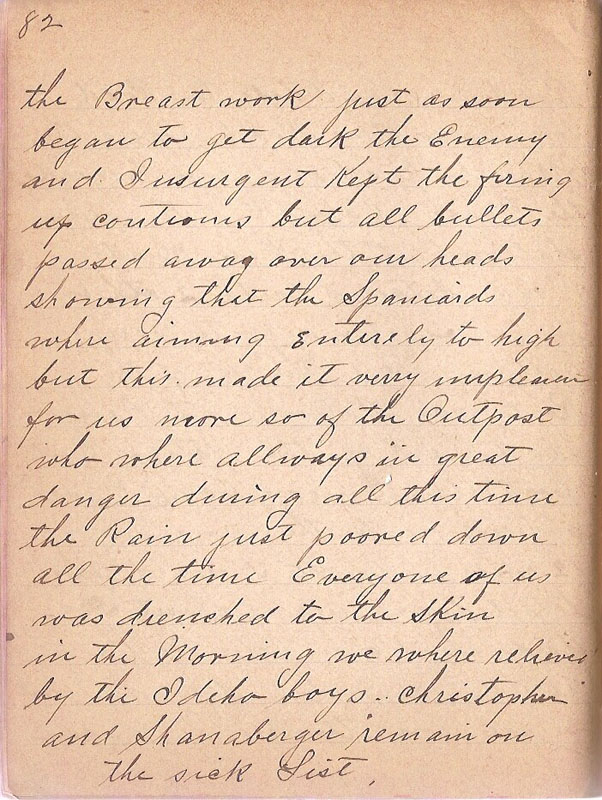 82
the Breast work just as soon
began to get dark the Enemy
and Insurgent Kept the firing
up contious but all bullets
passed away over our heads
showing that the Spaniards
where aiming Enterely to high
but this made it verry
for us more so of the Outpost
who where allways in great
danger during all this time
the Rain just poored down
all the time Everyone of us
was drenched to the skin
in the Morning we where relieved
by the Ideho boys.. Christopher
and Shanaberger remain on
the sick List.